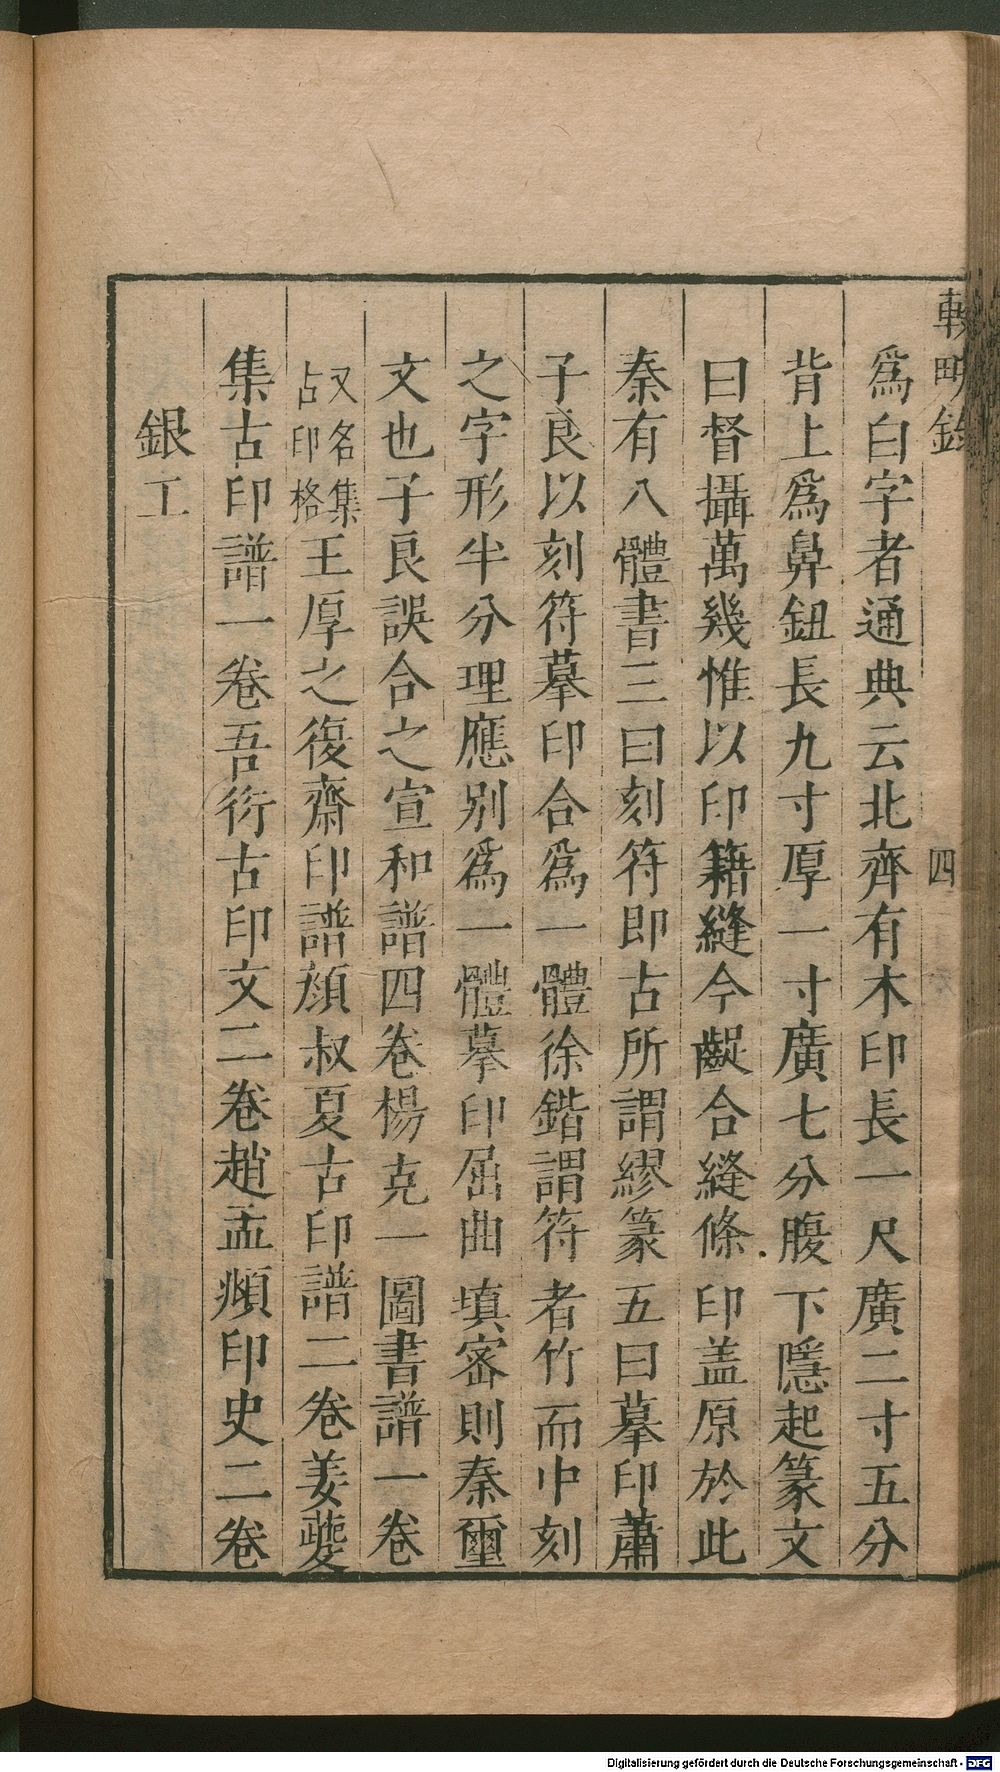 輟畊錄
四
爲白字者通典云北齊有木印長一尺廣二寸五分
背上爲鼻鈕長九寸厚一寸廣七分腹下隱起篆文
曰督攝萬幾惟以印籍縫今齪合縫條印盖原於此
秦有八體書三曰刻符即古所謂繆篆五曰摹印蕭
子良以刻符摹印合爲一體徐鍇謂符者竹而中刻
之字形半分理應別爲一體摹印屈曲填密則秦璽
文也子良誤合之宣和譜四卷楊克一圖書譜一卷
又名集
占印格
王厚之復齋印譜顏叔夏古印譜二卷姜夔
集古印譜一卷吾衍古印文二卷趙孟頫印史二卷
銀工
Digitalisierung gefördert durch die Deutsche Forschungsgemeinschaft - DFG